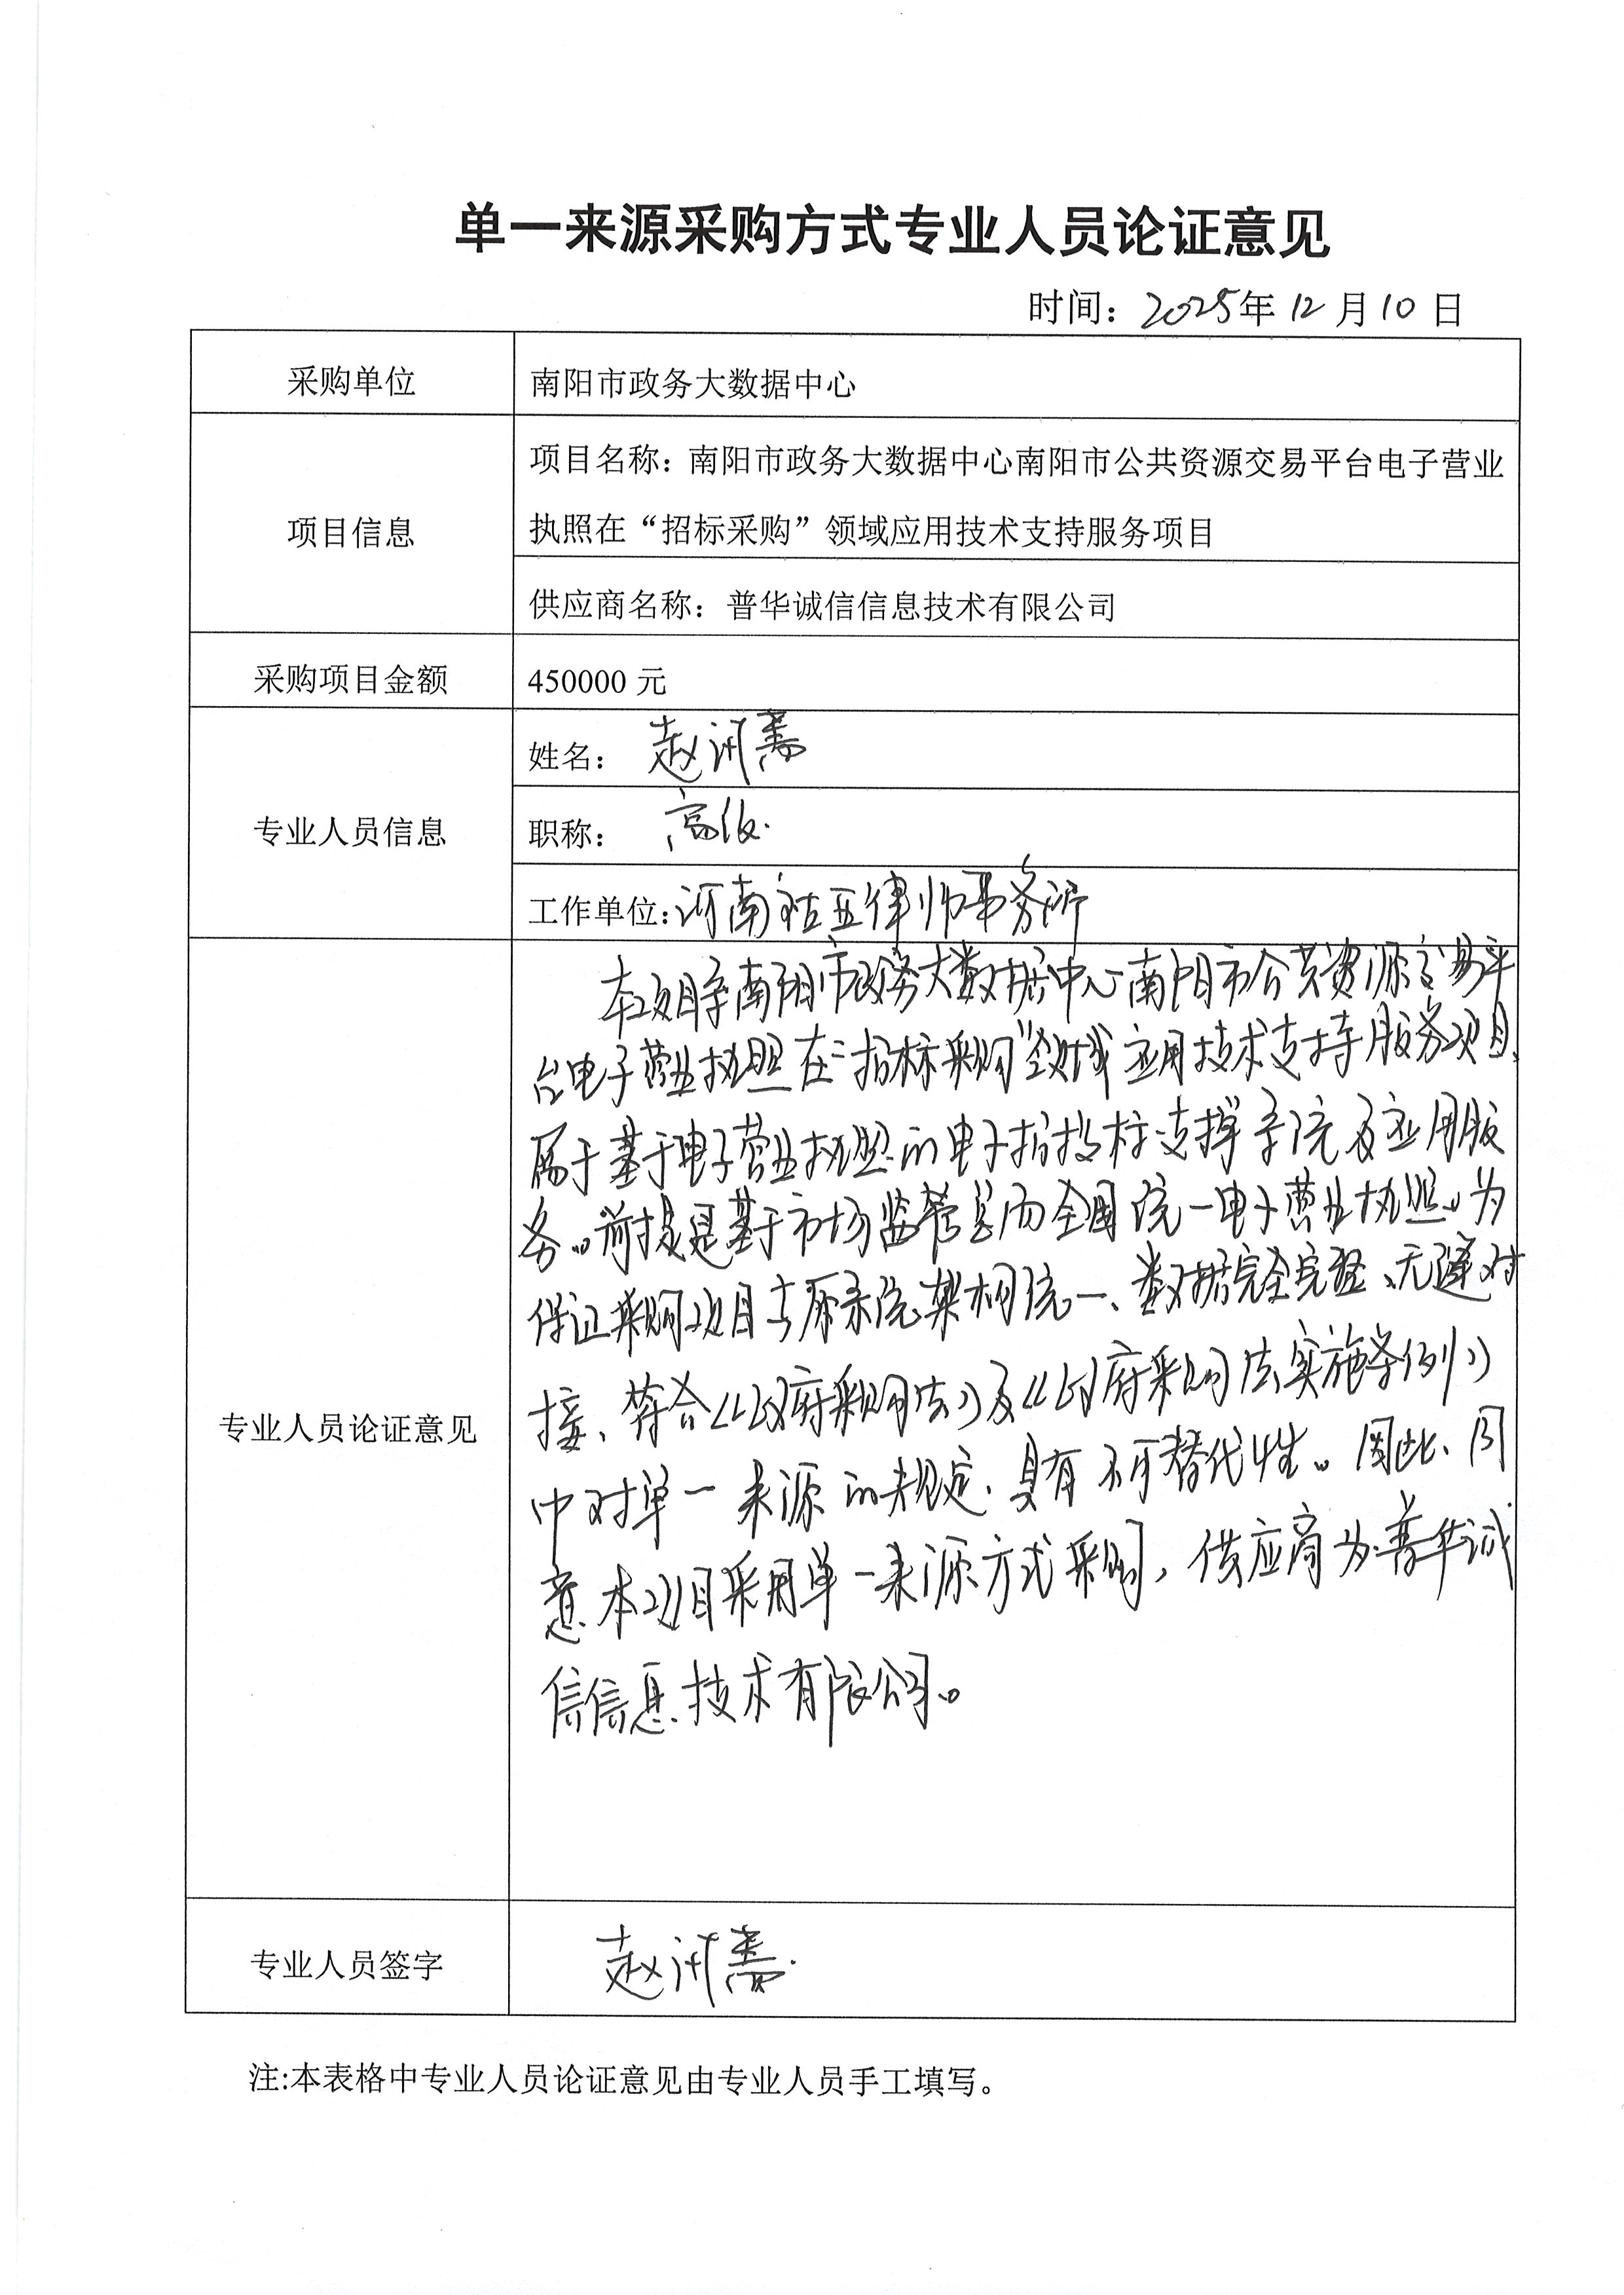 单一来源采购方式专业人员论证意见
时间：2025年12月10日
采购单位
南阳市政务大数据中心
项目信息
项目名称：南阳市政务大数据中心南阳市公共资源交易平台电子营业
执照在“招标采购”领域应用技术支持服务项目
供应商名称：普华诚信信息技术有限公司
采购项目金额
450000 元
专业人员信息
姓名：赵
职称：高级
工作单位:河南 律师事务所
专业人员论证意见
本项目系南阳市政务大数据中心南阳市公共资源交易平
台电子营业执照在“招标采购”领域应用技术支持服务项目，
属于基于电子营业执照的电子招投标支撑系统及应用服
务。前提是基于市场监管总局全国统一电子营业执照。为
保证采购项目与原系统架构统一、数据完全完整、无缝对
接、符合《政府采购法》及《政府采购法实施条例》
中对单一来源的规定，具有不可替代性。因此，同
意本项目采用单一来源方式采购，供应商为普华诚
信信息技术有限公司。
专业人员签字
赵
注:本表格中专业人员论证意见由专业人员手工填写。